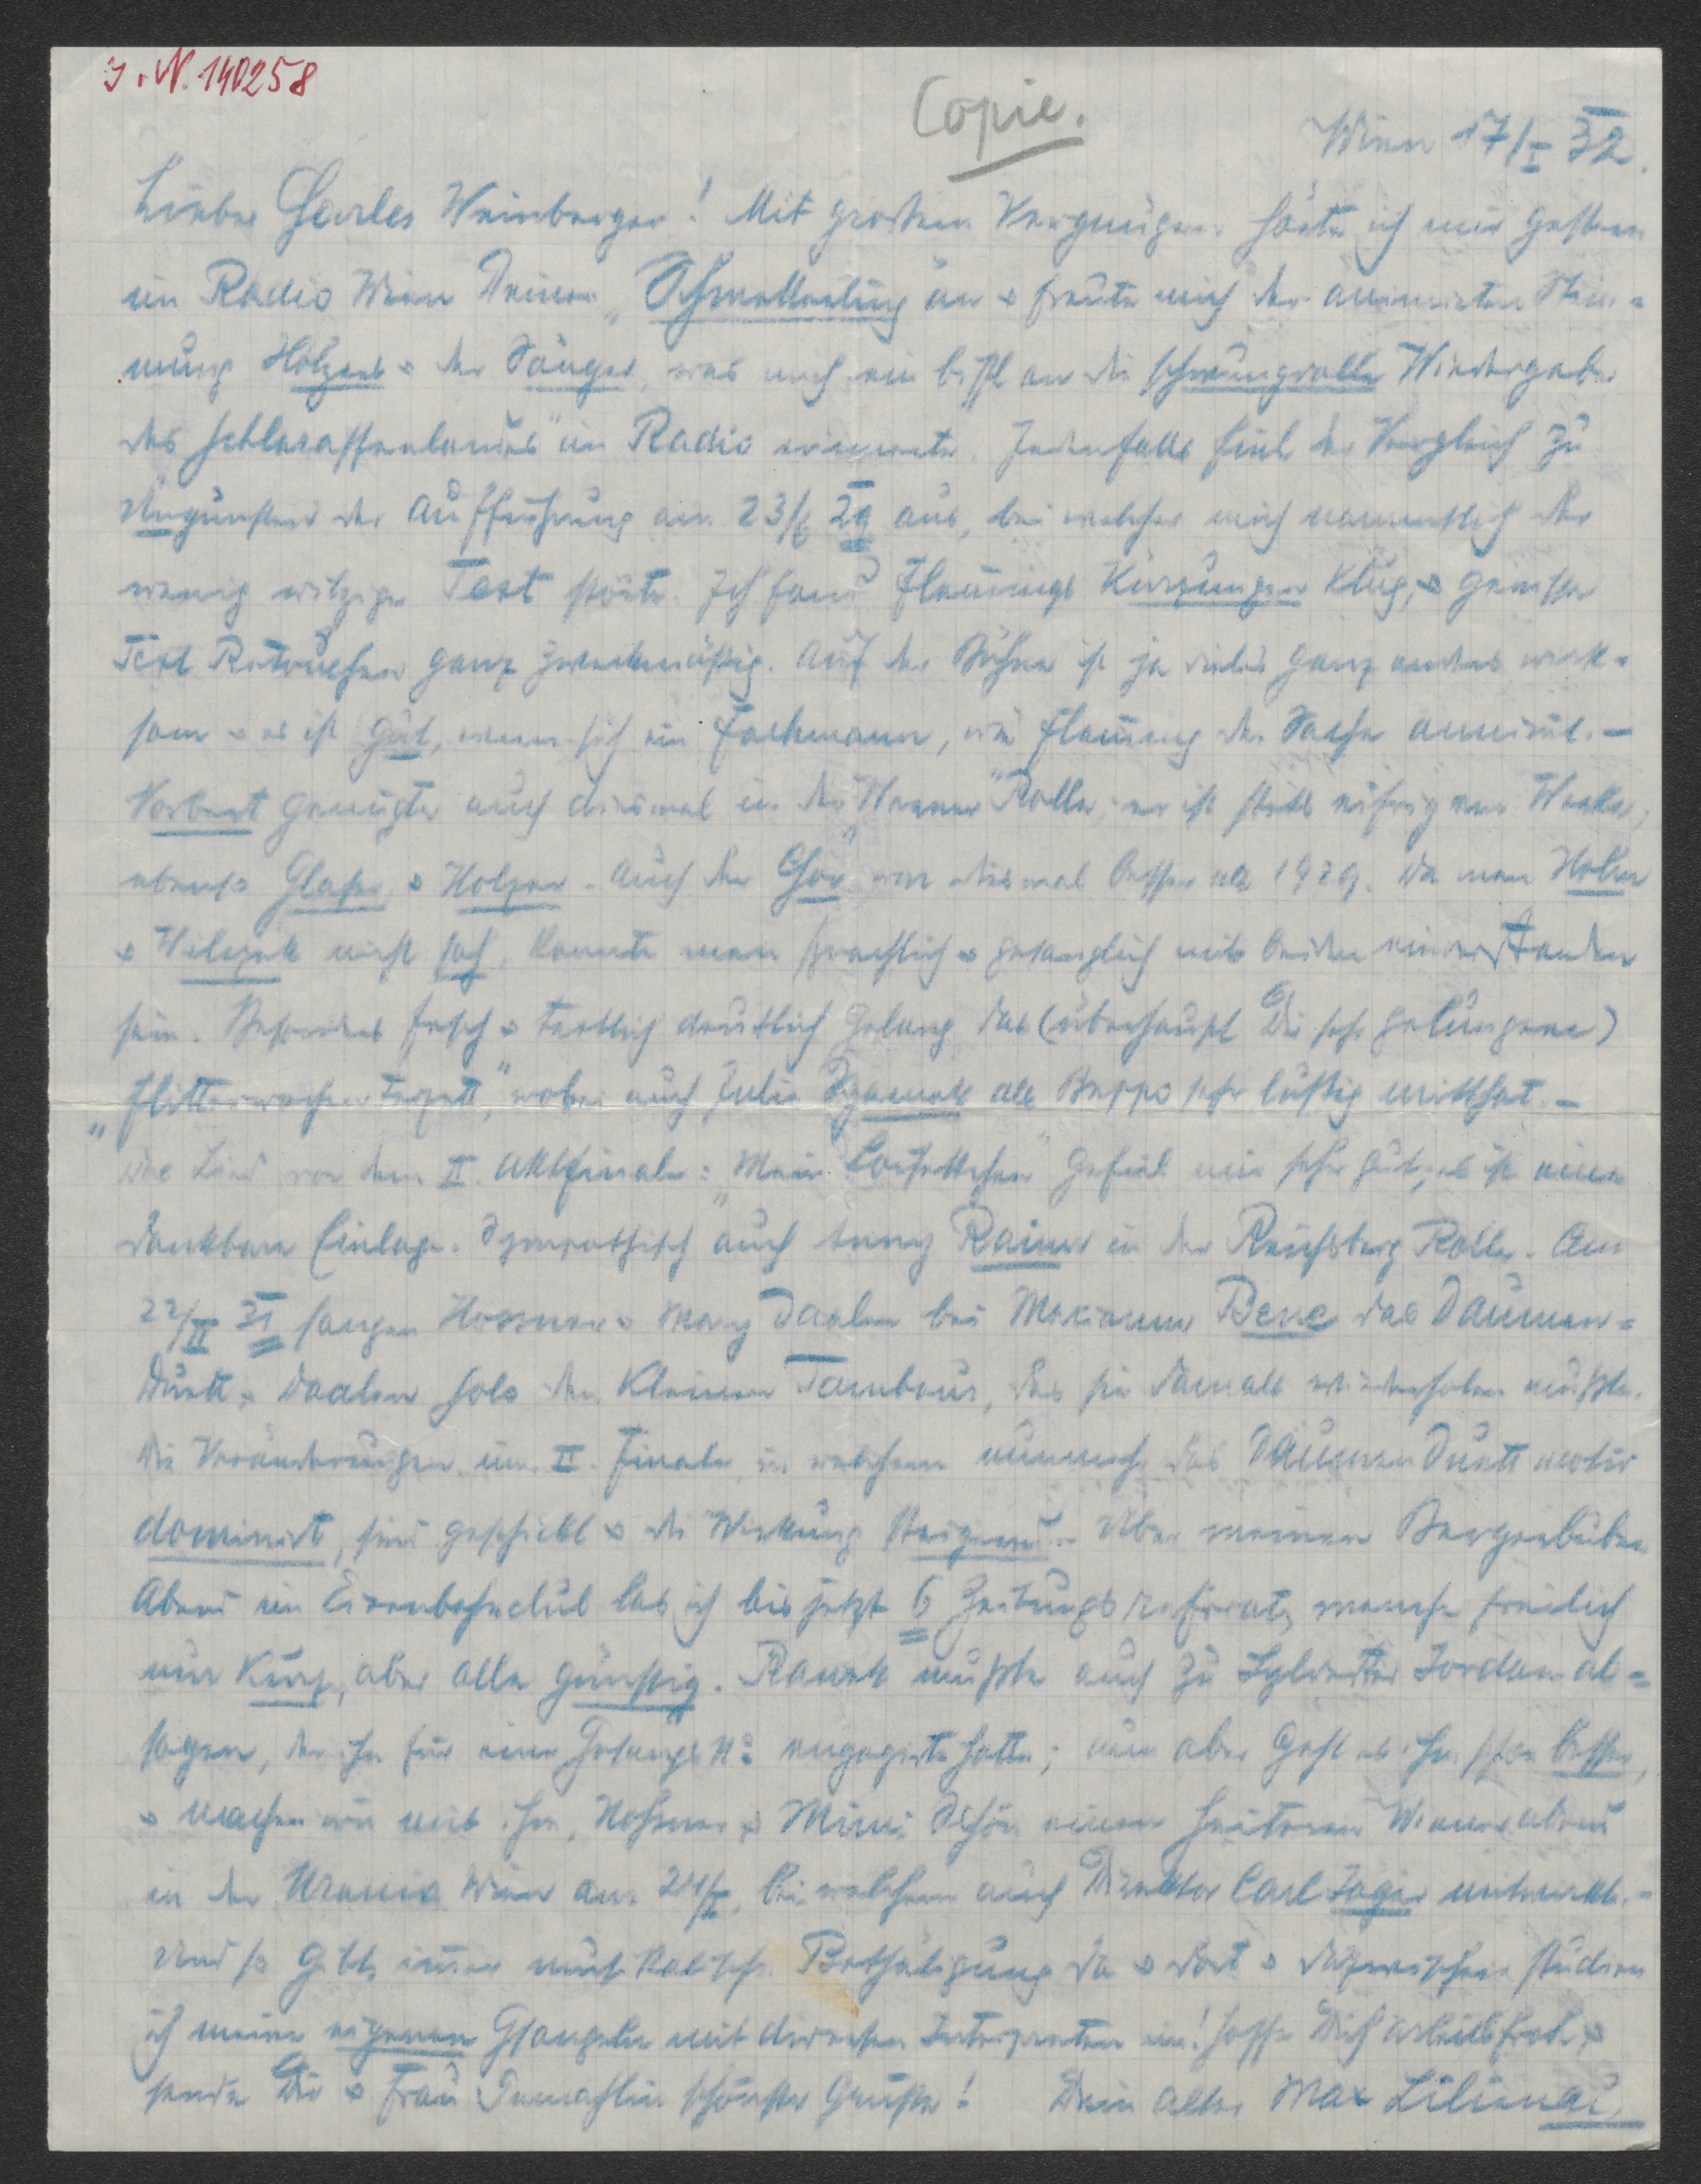 I. N. 140258
Copie.
Wien 17/I 32.
Lieber Charles Weinberger! Mit grossem Vergnügen hörte ich mir gestern
im Radio Wien Deinen „Schmetterling" an & freute mich der animirten Stim-
mung Holzers & der Sänger, was mich ein bissl an die schwungvolle Wiedergabe
des Schlaraffenlandes" im Radio erinnerte. Jedenfalls fiel der Vergleich zu
Ungunsten der Aufführung am 23/ 29 aus, bei welcher mich namentlich der
wenig witzige Text störte. Ich fand Flemings Kürzungen klug, & gewisse
Text Retouchen ganz zweckmäßig. Auf der Bühne ist ja vieles ganz anders wirk-
sam & es ist gut, wenn sich ein Fachmann, wie Fleming der Sache annimt. –
Norbert genügte auch diesmal in der Rolle, er ist stets eifrig am Werke,
ebenso Glaser & Holzer. Auch der Chor war diesmal besser als 1929. Da man
& nicht sah, konnte man sprachlich & gesanglich mit beiden einverstanden
sein. Besonders frisch & textlich deutlich gelang das (überhaupt Dir sehr gelungene)
„Flitterwochen Terzett," wobei auch Julia als Beppo sehr lustig mitthat. –
Das Lied vor dem II. Aktfinale: „Mein " gefiel mir sehr gut, es ist eine
dankbare Einlage. Sympathisch auch Anny Rainer in der Rolle. Am
22/II 31 sangen Hossner & Mary Daalen bei Marianne das Daumen-
Duett & Daalen solo den kleinen Tambour, das sie damals wiederholen mußte.
Die Veränderungen im II. Finale, in welchem nunmehr das Daumen Duett
dominirt, sind geschickt & die Wirkung steigernd. – Über meinen
Abend im Eisenbahnclub las ich bis jetzt 6 Zeitungsreferate, manche freilich
nur kurz, aber alle günstig. Rawek mußte auch zu Sylvester Jordan ab-
sagen, der ihn für eine Gesangs No engagirt hatte; nun aber geht es ihm schon besser,
& machen wir mit ihm, Hossner & Mimi Schön einen heiteren Wienerabend
in der Urania Wien am 24/I, bei welchem auch Direktor Carl Jäger mitwirkt. –
Und so gibts immer musikalische Bethätigung da & dort & dazwischen studire
ich meine eigenen Gsangeln mit diversen Interpreten ein! Hoffe Dich arbeitsfroh &
sende Dir & Frau Gemahlin schönste Grüsse! Dein alter Max Lilienau